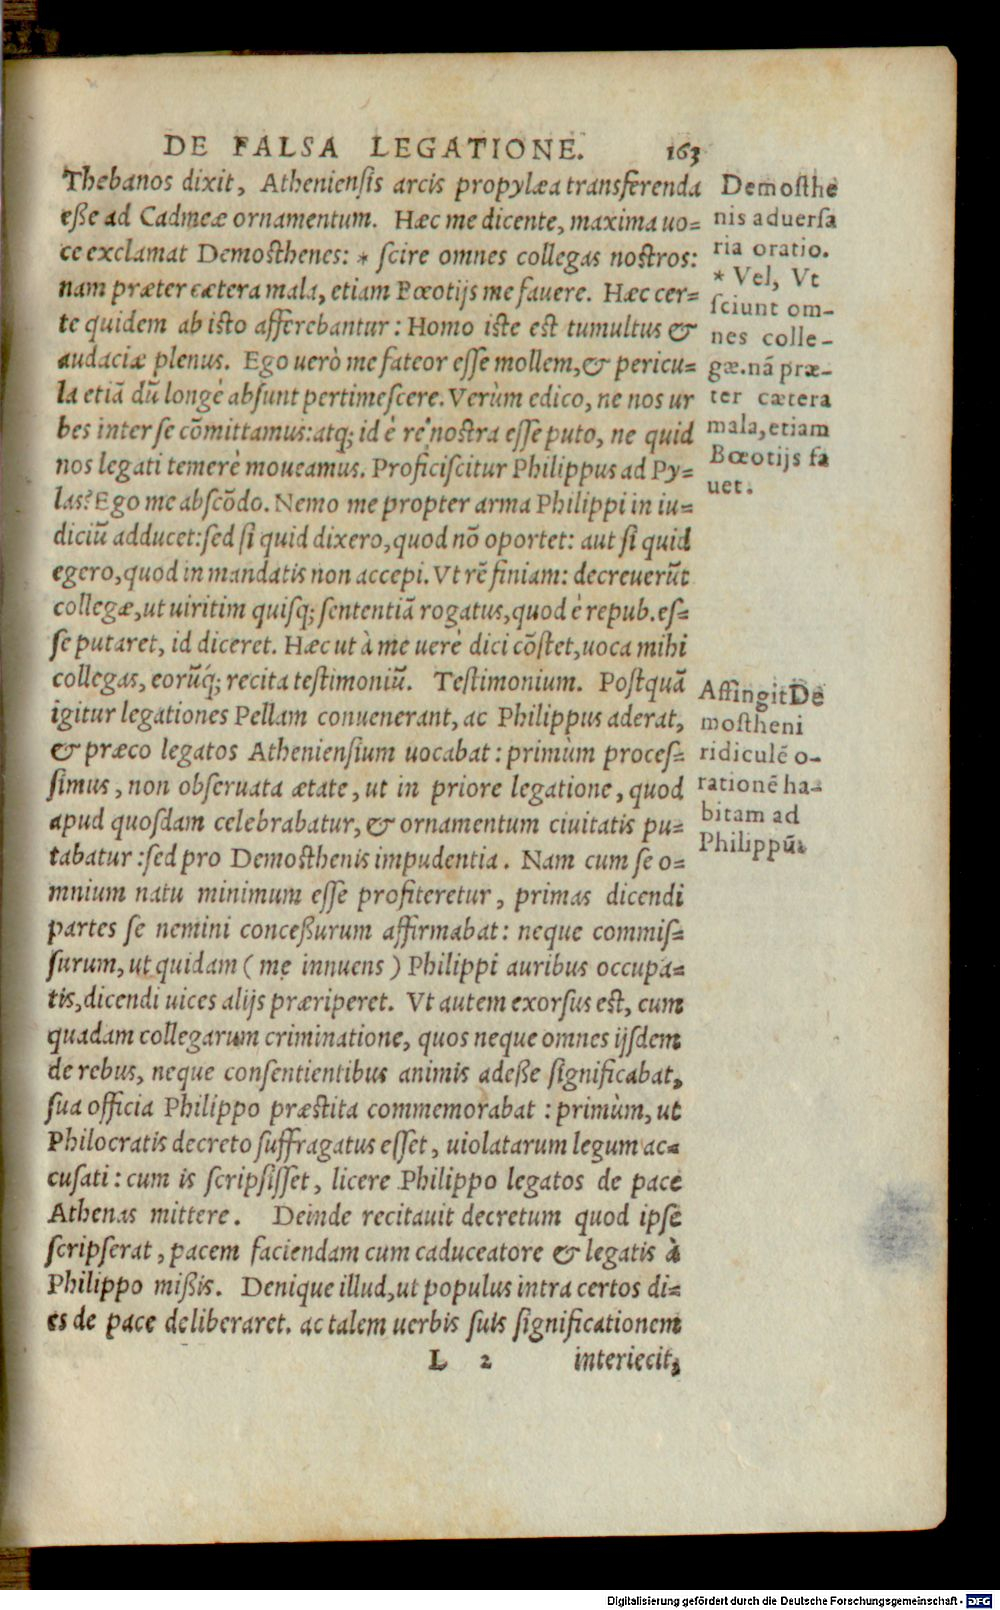 DE FALSA LEGATIONE. 163
Thebanos dixit, Atheniensis arcis propylæa transferenda
eße ad Cadmeæ ornamentum. Hæc me dicente, maxima uo=
ce exclamat Demosthenes: * scire omnes collegas nostros:
nam præter cætera mala, etiam Bœotijs me fauere. Hæc cer=
te quidem ab isto afferebantur: Homo iste est tumultus &
audaciæ plenus. Ego uerò me fateor esse mollem, & pericu=
la etiā dū longè absunt pertimescere. Verùm edico, ne nos ur
bes inter se cōmittamus: atq; id è re nostra esse puto, ne quid
nos legati temerè moueamus. Proficiscitur Philippus ad Py=
las? Ego me abscōdo. Nemo me propter arma Philippi in iu=
diciū adducet: sed si quid dixero, quod nō oportet: aut si quid
egero, quod in mandatis non accepi. Vt rē finiam: decreuerūt
collegæ, ut uiritim quisq; sententiā rogatus, quod è repub. es=
se putaret, id diceret. Hæc ut à me uerè dici cōstet, uoca mihi
collegas, eorūq́; recita testimoniū. Testimonium. Postquā
igitur legationes Pellam conuenerant, ac Philippus aderat,
& præco legatos Atheniensium uocabat: primùm proces=
simus, non obseruata ætate, ut in priore legatione, quod
apud quosdam celebrabatur, & ornamentum ciuitatis pu=
tabatur: sed pro Demosthenis impudentia. Nam cum se o=
mnium natu minimum esse profiteretur, primas dicendi
partes se nemini conceßurum affirmabat: neque commis=
surum, ut quidam (me innuens) Philippi auribus occupa=
tis, dicendi uices alijs præriperet. Vt autem exorsus est, cum
quadam collegarum criminatione, quos neque omnes ijsdem
de rebus, neque consentientibus animis adeße significabat,
sua officia Philippo præstita commemorabat: primùm, ut
Philocratis decreto suffragatus esset, uiolatarum legum ac=
cusati: cum is scripsisset, licere Philippo legatos de pace
Athenas mittere. Deinde recitauit decretum quod ipse
scripserat, pacem faciendam cum caduceatore & legatis à
Philippo mißis. Denique illud, ut populus intra certos di=
es de pace deliberaret. ac talem uerbis suis significationem
L 2 interiecit,
Demosthe
nis aduersa
ria oratio.
* Vel, Vt
sciunt om-
nes colle-
gæ. nā præ-
ter cætera
mala, etiam
Bœotijs fa
uet.
Affingit De
mostheni
ridiculē o-
rationē ha-
bitam ad
Philippū.
Digitalisierung gefördert durch die Deutsche Forschungsgemeinschaft - DFG